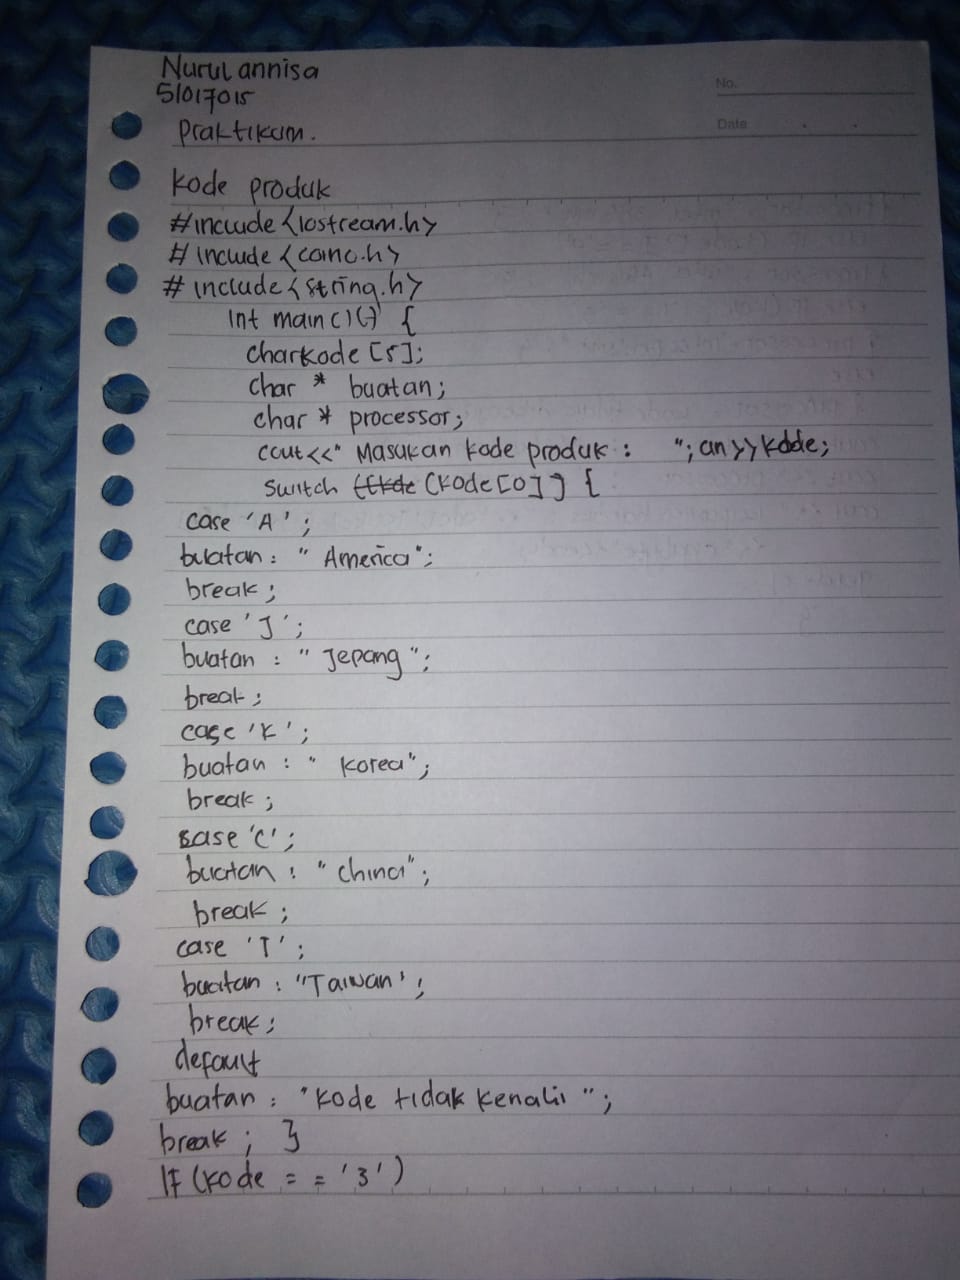 Nurul annisa
51017015
No.
praktikum.
Date
kode produk
#include <iostream.h>
# include <conio.h>
# include <string.h>
Int main()() {
charkode [5];
char * buatan;
char * processor;
cout<<" Masukan kode produk : "; an>>kode;
switch (kode[0]] {
case 'A' ;
buatan : " America";
break ;
case 'J' ;
buatan : " Jepang ";
break ;
case 'K' ;
buatan : " Korea";
break ;
case 'C' ;
buatan : " china";
break ;
case 'T' ;
buatan : "Taiwan' ;
break ;
default
buatan : "kode tidak kenali ";
break ; }
If (kode = = '3')